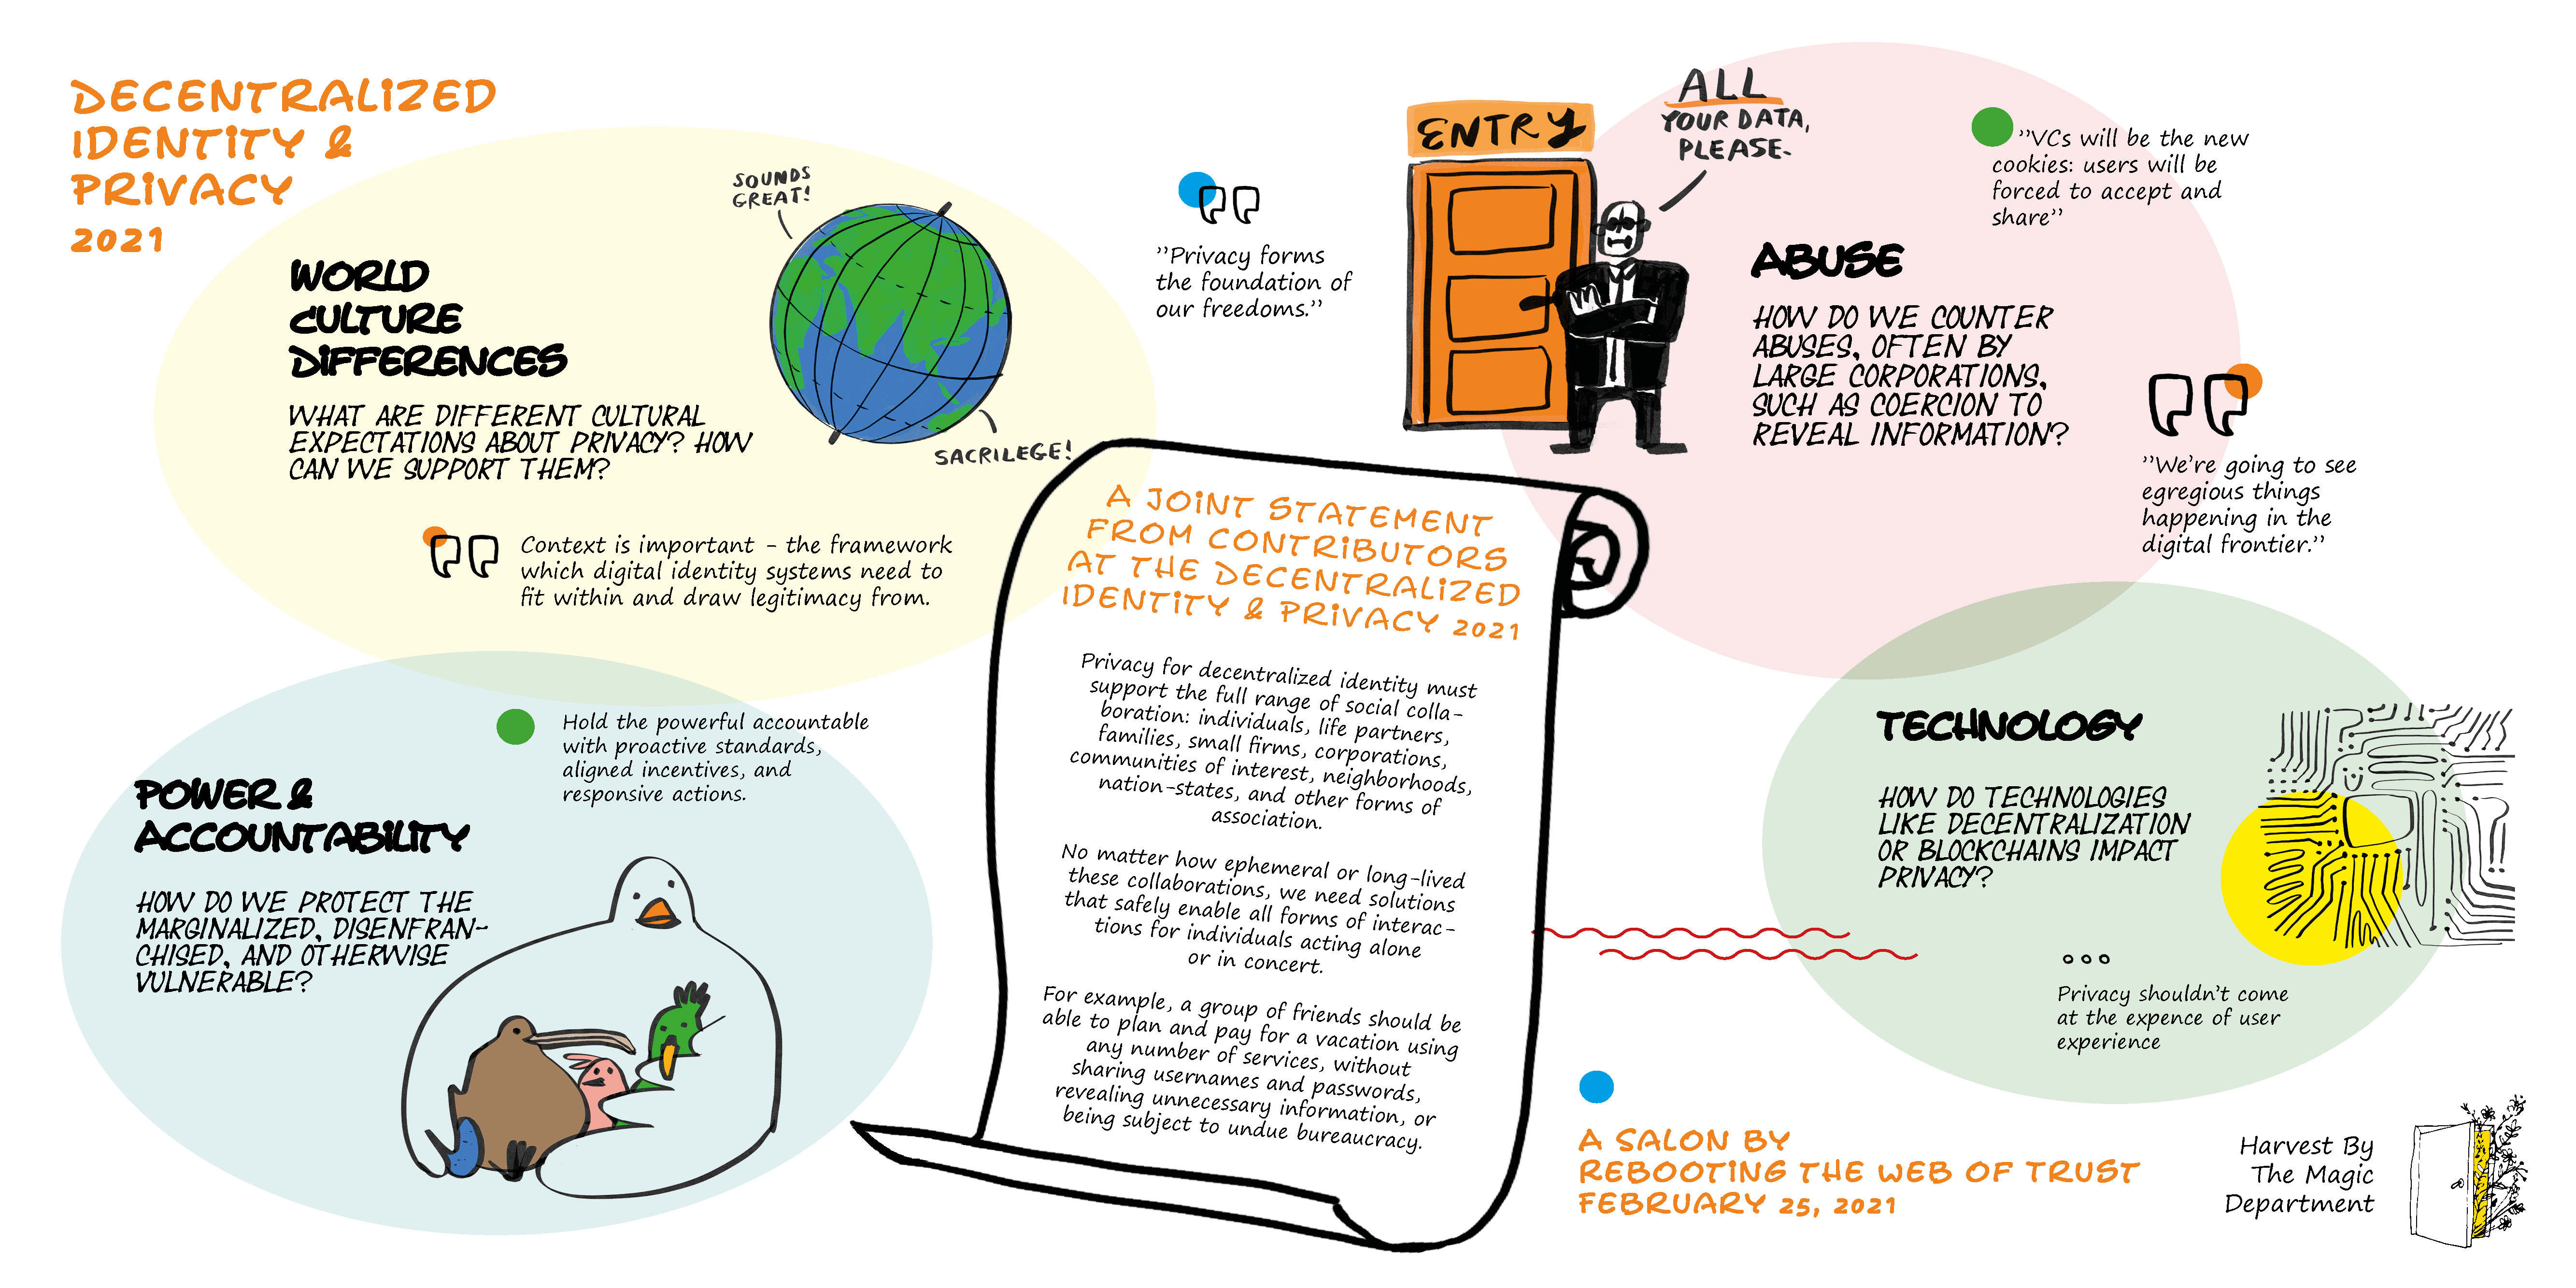 DECENTRALIZED
IDENTITY &
PRIVACY
2021
WORLD
CULTURE
DIFFERENCES
WHAT ARE DIFFERENT CULTURAL
EXPECTATIONS ABOUT PRIVACY? HOW
CAN WE SUPPORT THEM?
SOUNDS
GREAT!
SACRILEGE!
Context is important - the framework
which digital identity systems need to
fit within and draw legitimacy from.
"Privacy forms
the foundation of
our freedoms."
ENTRY
ALL
YOUR DATA,
PLEASE.
"VCs will be the new
cookies: users will be
forced to accept and
share"
ABUSE
HOW DO WE COUNTER
ABUSES, OFTEN BY
LARGE CORPORATIONS,
SUCH AS COERCION TO
REVEAL INFORMATION?
"We're going to see
egregious things
happening in the
digital frontier."
POWER &
ACCOUNTABILITY
HOW DO WE PROTECT THE
MARGINALIZED, DISENFRAN-
CHISED, AND OTHERWISE
VULNERABLE?
Hold the powerful accountable
with proactive standards,
aligned incentives, and
responsive actions.
A JOINT STATEMENT
FROM CONTRIBUTORS
AT THE DECENTRALIZED
IDENTITY & PRIVACY 2021
Privacy for decentralized identity must
support the full range of social colla-
boration: individuals, life partners,
families, small firms, corporations,
communities of interest, neighborhoods,
nation-states, and other forms of
association.
No matter how ephemeral or long-lived
these collaborations, we need solutions
that safely enable all forms of interac-
tions for individuals acting alone
or in concert.
For example, a group of friends should be
able to plan and pay for a vacation using
any number of services, without
sharing usernames and passwords,
revealing unnecessary information, or
being subject to undue bureaucracy.
TECHNOLOGY
HOW DO TECHNOLOGIES
LIKE DECENTRALIZATION
OR BLOCKCHAINS IMPACT
PRIVACY?
Privacy shouldn't come
at the expence of user
experience
A SALON BY
REBOOTING THE WEB OF TRUST
FEBRUARY 25, 2021
Harvest By
The Magic
Department